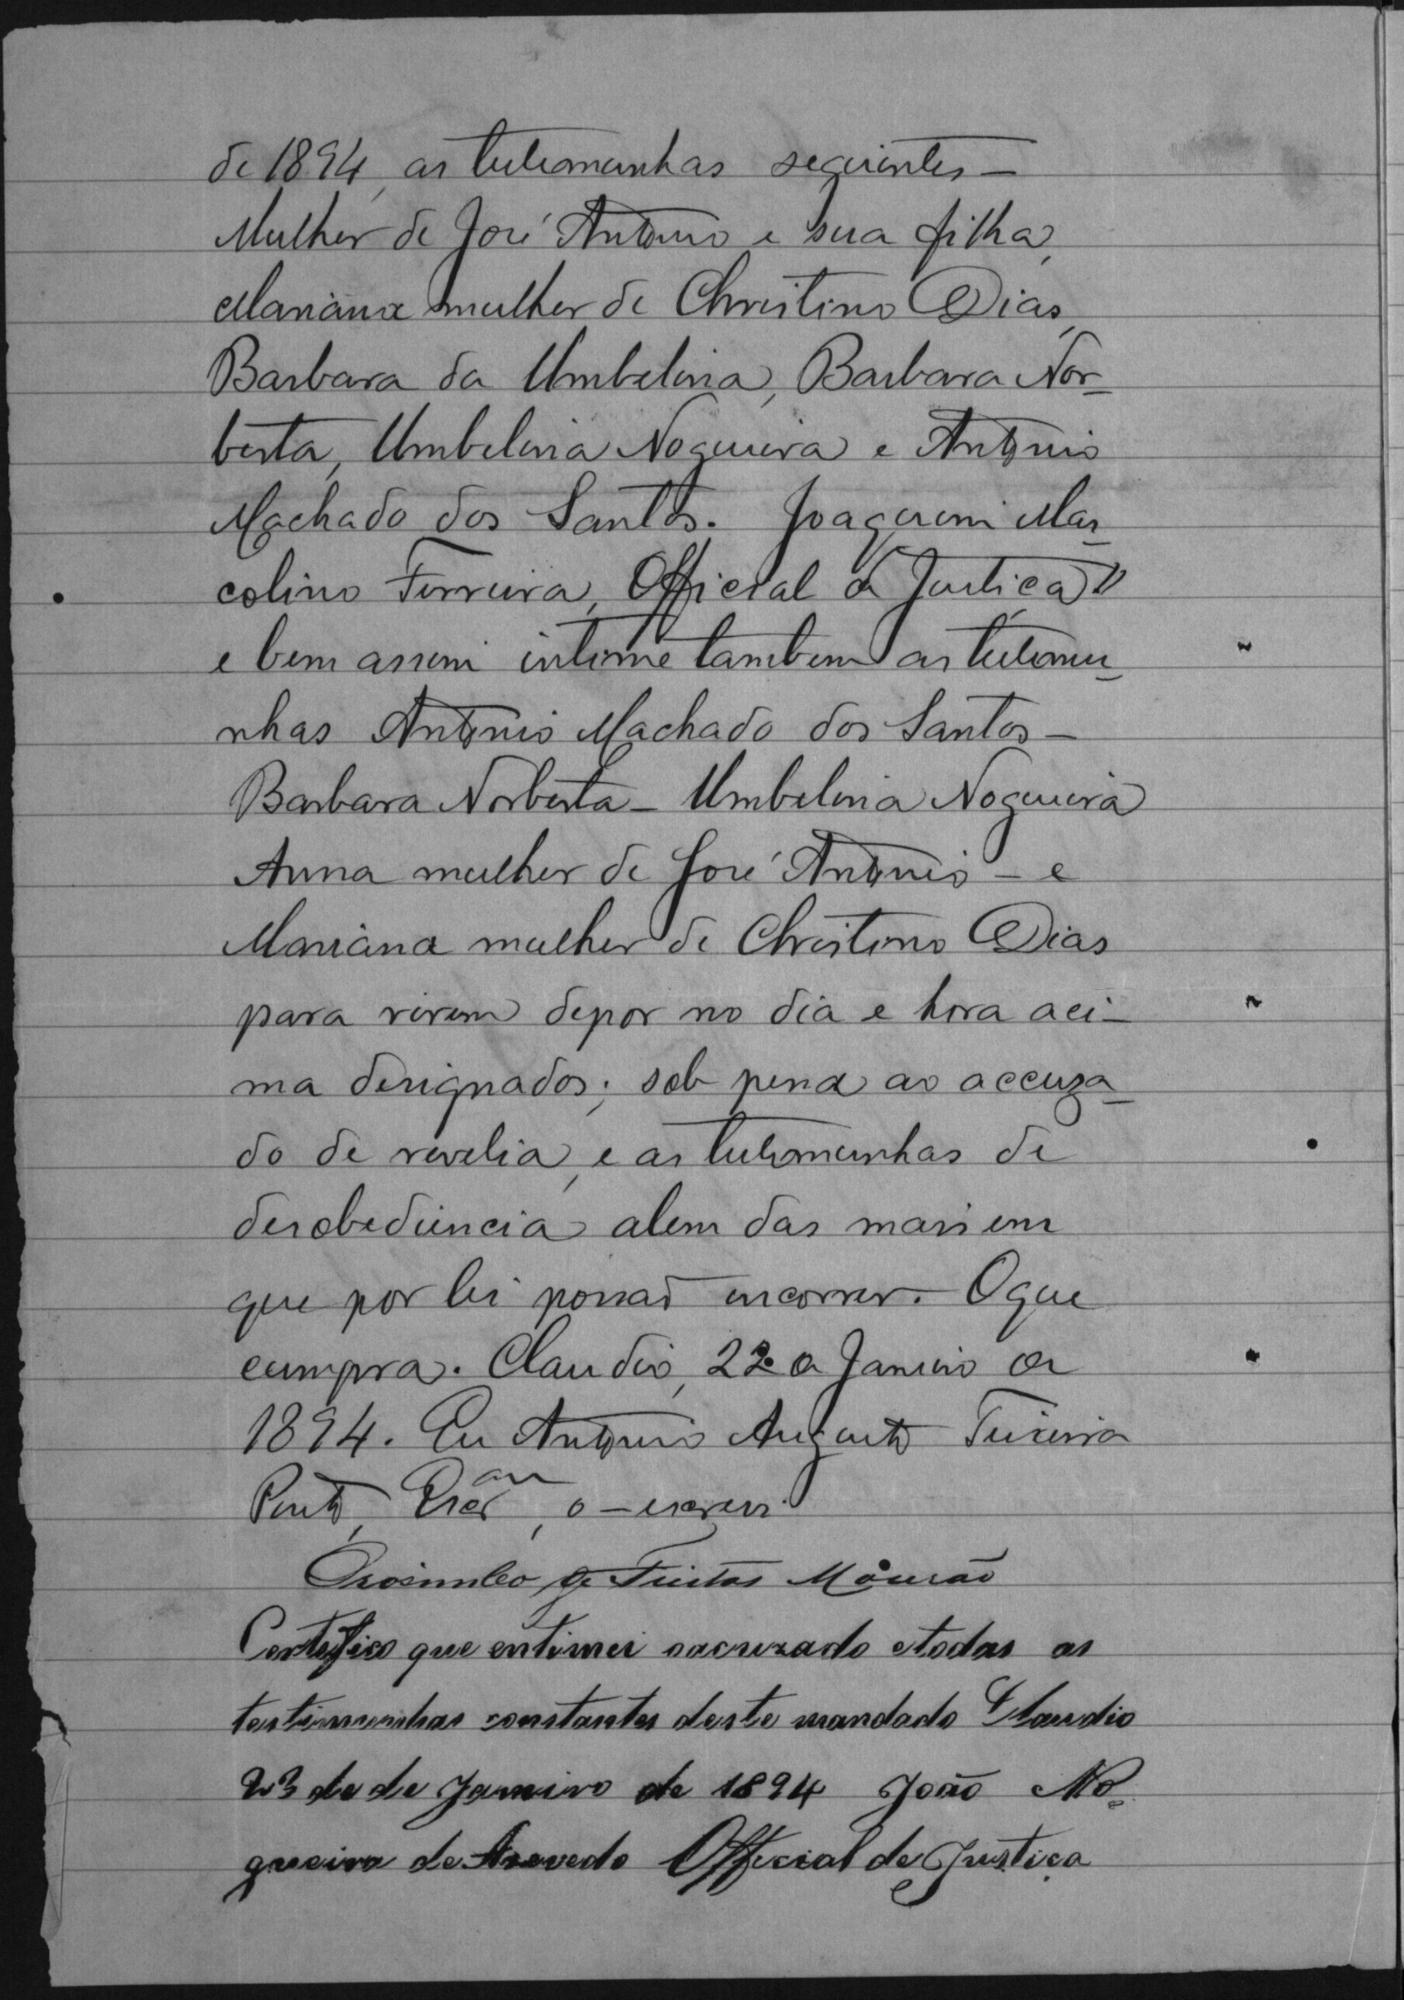 de 1894, as testemunhas seguintes —
Mulher de José Antonio e sua filha,
Mariana mulher de Christino Dias,
Barbara da Umbelina, Barbara Nor-
berta, Umbelina Nogueira e Antonio
Machado dos Santos. Joaquim Mar-
colino Ferreira, Official de Justiça"
e bem assim intime tambem as testemu-
nhas Antonio Machado dos Santos —
Barbara Norberta — Umbelina Nogueira
Anna mulher de José Antonio — e
Mariana mulher de Christino Dias
para virem depor no dia e hora aci-
ma designados; sob pena ao accuza-
do de revelia, e as testemunhas de
desobediencia alem das mais em
que por lei possaõ incorrer. O que
cumpra. Claudio, 22 de Janeiro de
1894. Eu Antonio Augusto Teixeira
Pinto, Escr.am, o — escrevi.
Orosimbo de Freitas Mourão
Certefico que entimei oacuzado etodas as
testimunhas constantes deste mandado Claudio
23 de de Janeiro de 1894 João No-
gueira de Asevedo Official de Justiça